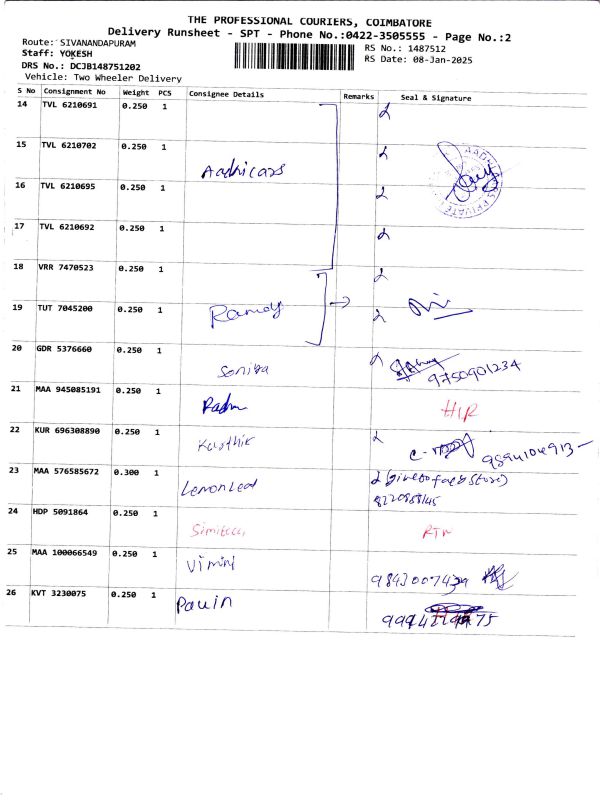 THE PROFESSIONAL COURIERS, COIMBATORE
Delivery Runsheet - SPT - Phone No.:0422-3505555 - Page No.:2
Route: SIVANANDAPURAM
Staff: YOKESH
DRS No.: DCJB148751202
Vehicle: Two Wheeler Delivery
RS No.: 1487512
RS Date: 08-Jan-2025
S No Consignment No Weight PCS Consignee Details Remarks Seal & Signature
14 TVL 6210691 0.250 1
15 TVL 6210702 0.250 1
Aadhicars
16 TVL 6210695 0.250 1
17 TVL 6210692 0.250 1
18 VRR 7470523 0.250 1
19 TUT 7045200 0.250 1
Ramdy
20 GDR 5376660 0.250 1
Sonika 9750901234
21 MAA 945085191 0.250 1
Padm
22 KUR 696308890 0.250 1
Karthik
23 MAA 576585672 0.300 1
Lemonleaf
24 HDP 5091864 0.250 1
25 MAA 100066549 0.250 1
Vimini
26 KVT 3230075 0.250 1
Pavin